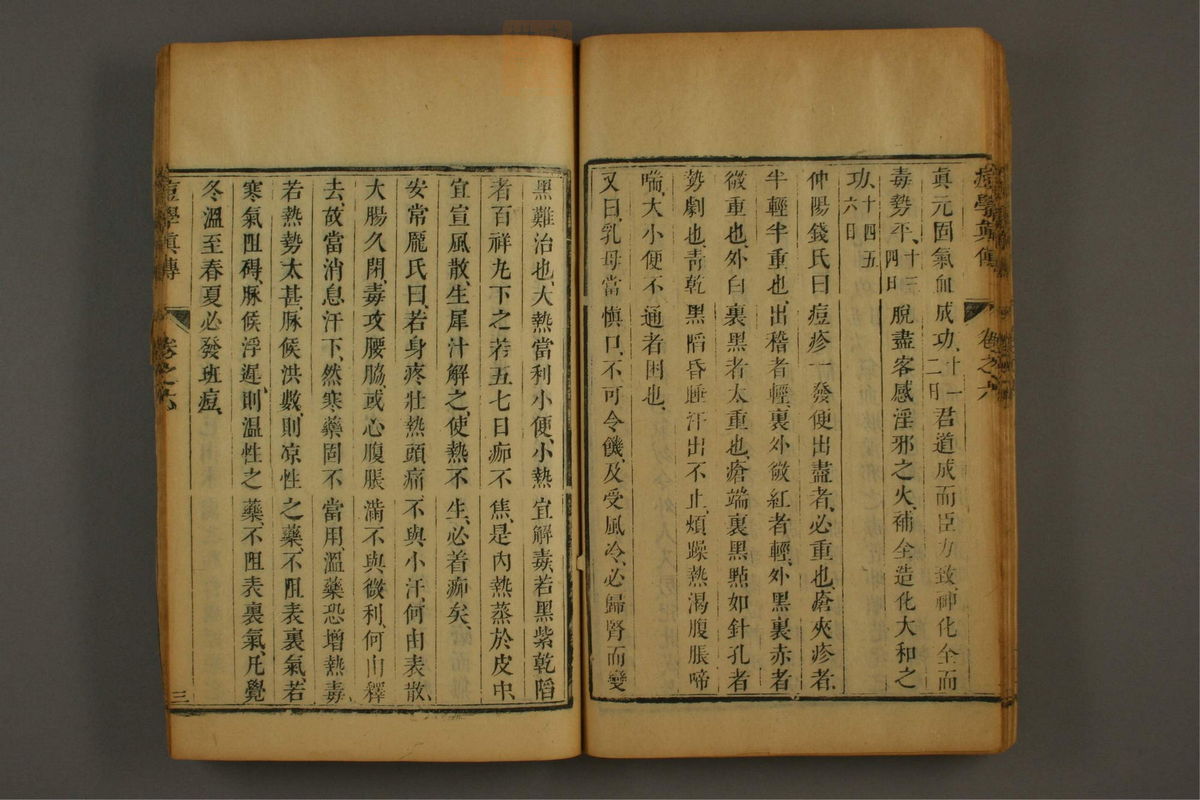 痘學真傳 卷之六
真元固氣血成功十一二日君道成而臣力致神化全而
毒勢平十三四日脫盡客感淫邪之火補全造化大和之
功十四五六日
仲陽錢氏曰痘疹一發便出盡者必重也瘡夾疹者
半輕半重也出稽者輕裏外微紅者輕外黑裏赤者
微重也外白裏黑者太重也瘡端裏黑點如針孔者
勢劇也青乾黑陷昏睡汗出不止煩躁熱渴腹脹啼
喘大小便不通者困也
又曰乳母當慎口不可令饑及受風冷必歸腎而變
黑難治也大熱當利小便小熱宜解毒若黑紫乾陷
者百祥丸下之若五七日痂不焦是內熱蒸於皮中
宜宣風散生犀汁解之使熱不生必着痂矣
安常龐氏曰若身疼壯熱頭痛不與小汗何由表散
大腸久閉毒攻腰脇或心腹脹滿不與微利何由釋
去故當消息汗下然寒藥固不當用溫藥恐增熱毒
若熱勢太甚脉候洪數則凉性之藥不阻表裏氣若
寒氣阻碍脉候浮遲則溫性之藥不阻表裏氣凡覺
冬溫至春夏必發班痘
痘學眞傳 卷之六 三